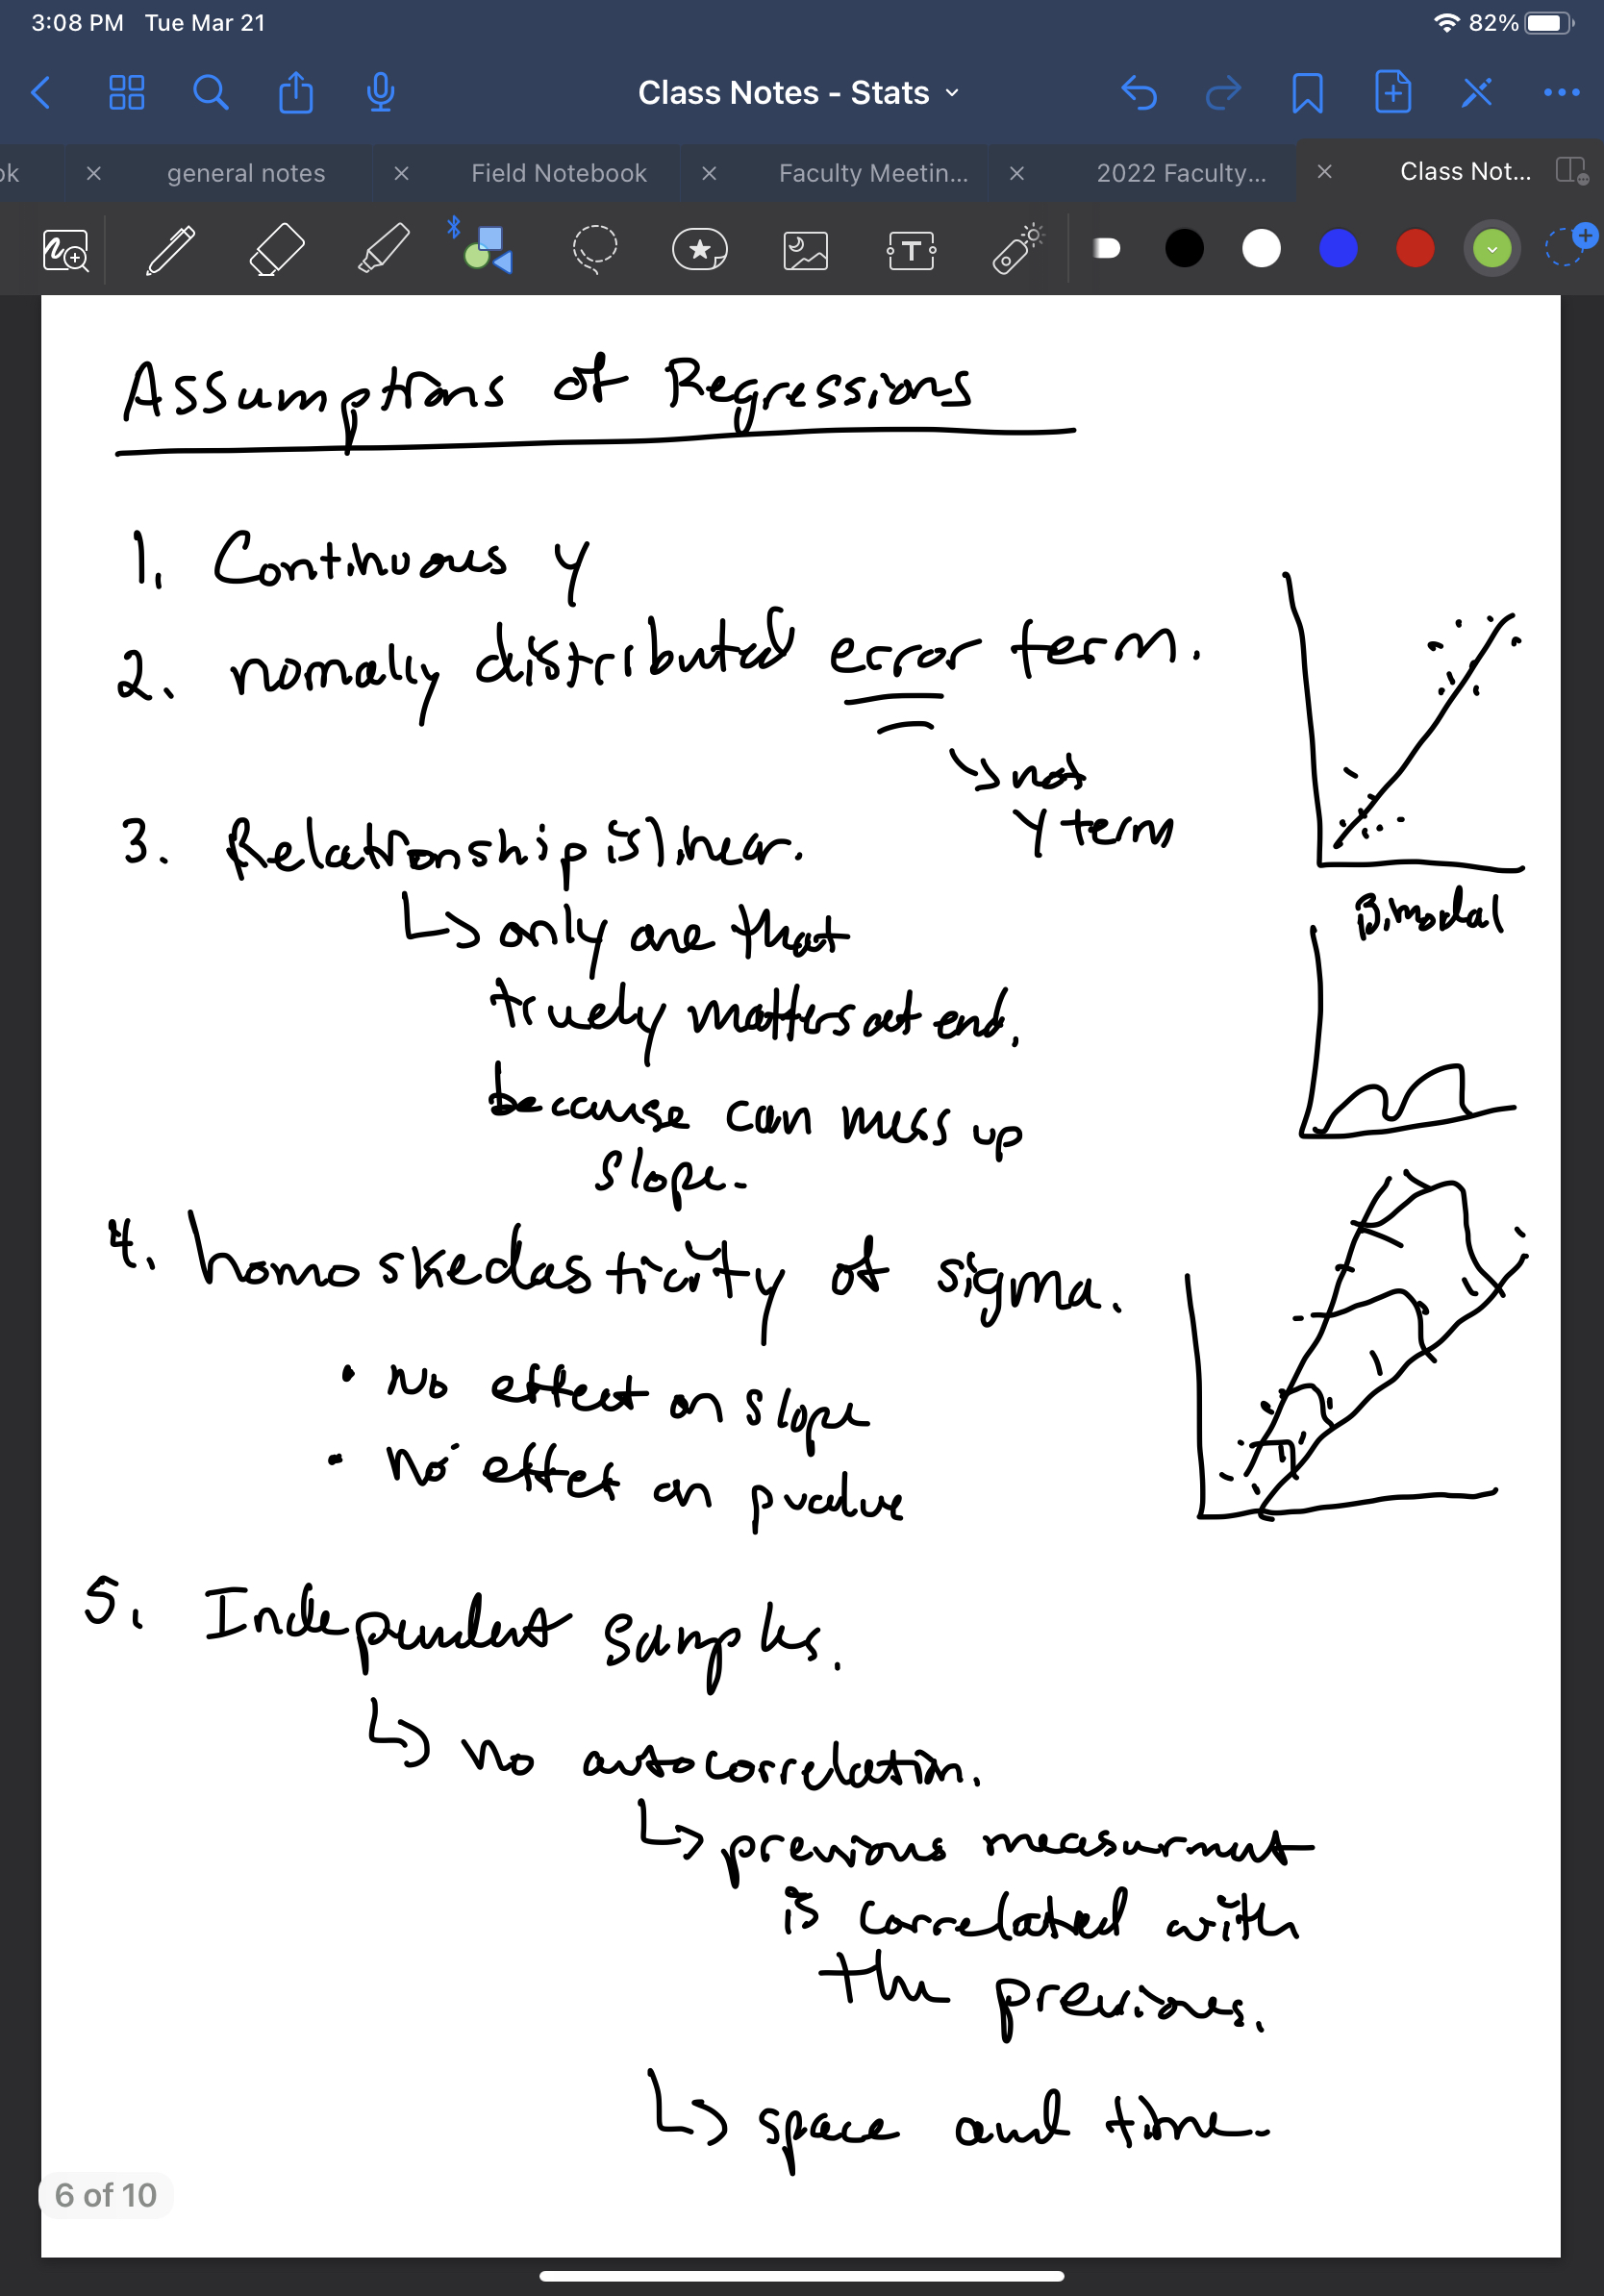 3:08 PM Tue Mar 21
82%
Class Notes - Stats
ok
general notes
Field Notebook
Faculty Meetin...
2022 Faculty...
Class Not...
T
Assumptions of Regressions
1. Continuous y
2. nomally distributed error term.
↳ not
Y term
3. Relationship is linear.
↳ only one that
truely matters at end.
because can mess up
slope.
Bimodal
4. homoskedasticity of sigma.
• No effect on slope
• No effect on pvalue
5. Independent samples.
↳ no autocorrelation.
↳ previous measurment
is correlated with
the previous.
↳ space and time.
6 of 10